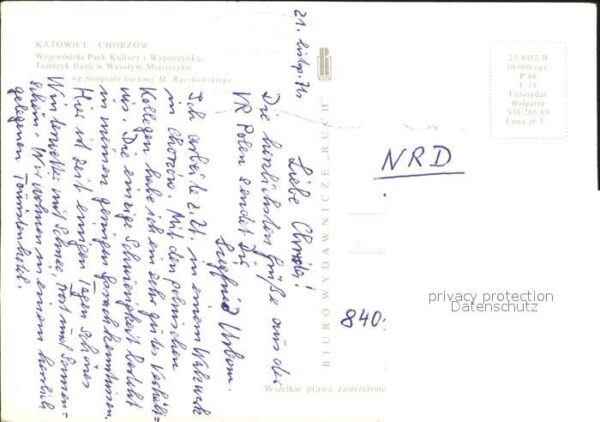 KATOWICE - CHORZÓW
Wojewódzki Park Kultury i Wypoczynku.
Teatrzyk Iluzji w Wesołym Miasteczku
wg fotografii barwnej M. Raczkowskiego
BIURO WYDAWNICZE „RUCH”
23-4052/R
50 000 egz.
P 66
F 18
Fotoszdat
Bulgaria
VII/265/69
Cena zł 3.
NRD
840
privacy protection
Datenschutz
Wszelkie prawa zastrzeżone
21. 71
Liebe Christa!
Die herzlichsten Grüße aus der
VR Polen sendet Dir
Siegfried Urban.
Ich arbeite z. Zt. in einem Walzwerk
in Chorzow. Mit den polnischen
Kollegen habe ich ein sehr gutes Verhält-
nis. Die einzige Schwierigkeit besteht
in meinen geringen
Hier ist seit einigen Tagen schönes
Winterwetter mit Schnee, Frost und Sonnen-
schein. Wir wohnen in einem herrlich
gelegenen Touristenhotel.